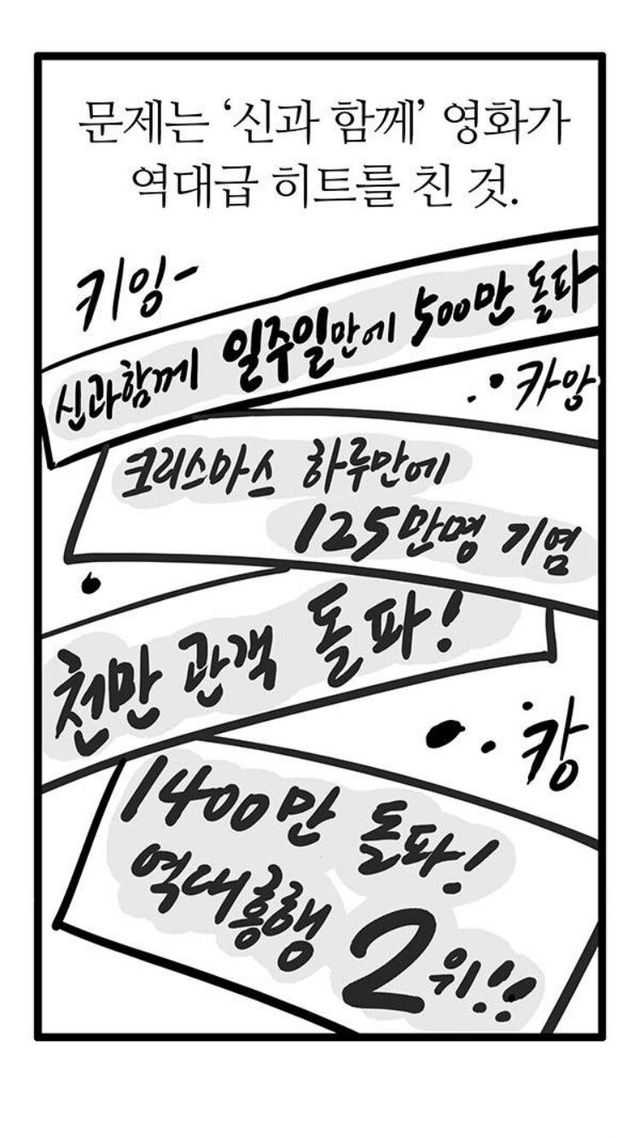 문제는 ‘신과 함께’ 영화가
역대급 히트를 친 것.
키잉-
신과함께 일주일만에 500만 돌파
카앙
크리스마스 하루만에
125만명 기염
천만 관객 돌파!
캉
1400만 돌파!
역대흥행 2위!!